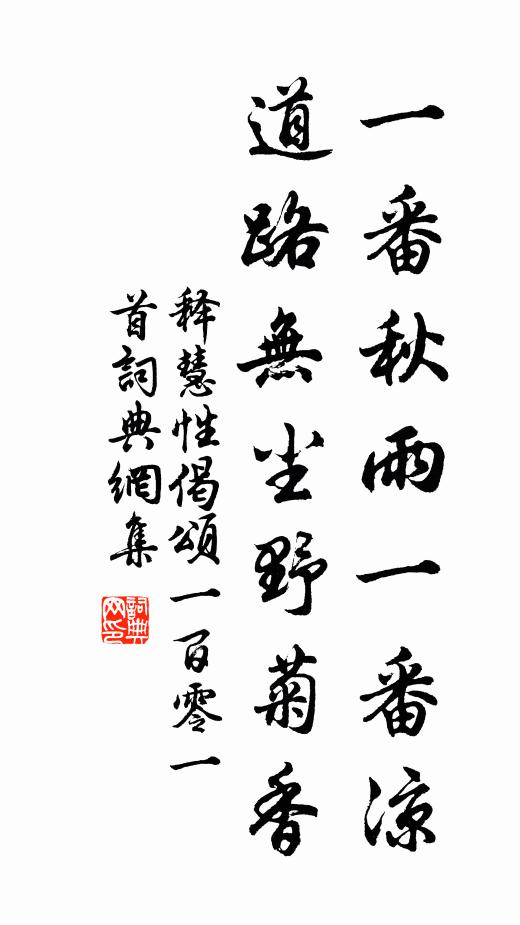 一番秋雨一番涼
道路無尘野菊香
释慧性偈頌一百零一
首詞典網集
詞典
网印